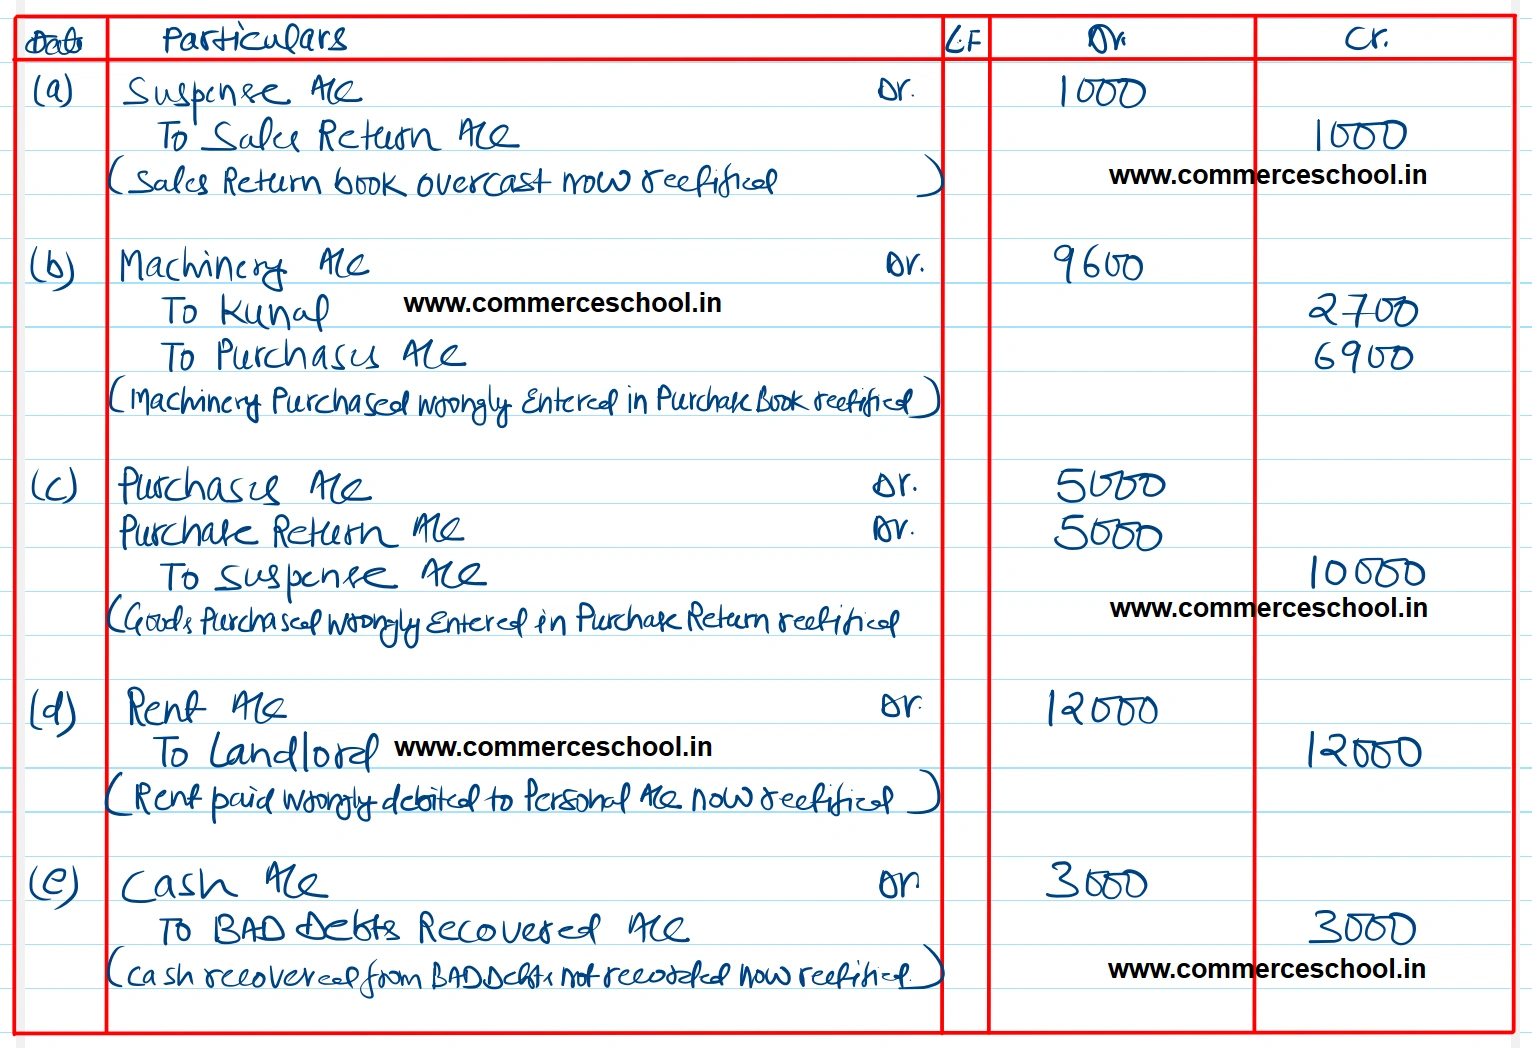 Date Particulars L.F Dr. Cr.
(a) Suspense A/c Dr. 1000
To Sales Return A/c 1000
(Sales Return book overcast now rectified)
www.commerceschool.in
(b) Machinery A/c Dr. 9600
To Kunal www.commerceschool.in 2700
To Purchases A/c 6900
(Machinery Purchased wrongly Entered in Purchase Book rectified)
(c) Purchases A/c Dr. 5000
Purchase Return A/c Dr. 5000
To Suspense A/c 10000
www.commerceschool.in
(Goods Purchased wrongly Entered in Purchase Return rectified
(d) Rent A/c Dr. 12000
To Landlord www.commerceschool.in 12000
(Rent paid wrongly debited to Personal A/c now rectified)
(e) Cash A/c Dr 3000
To BAD Debts Recovered A/c 3000
(Cash recovered from BAD Debts not recorded now rectified.)
www.commerceschool.in